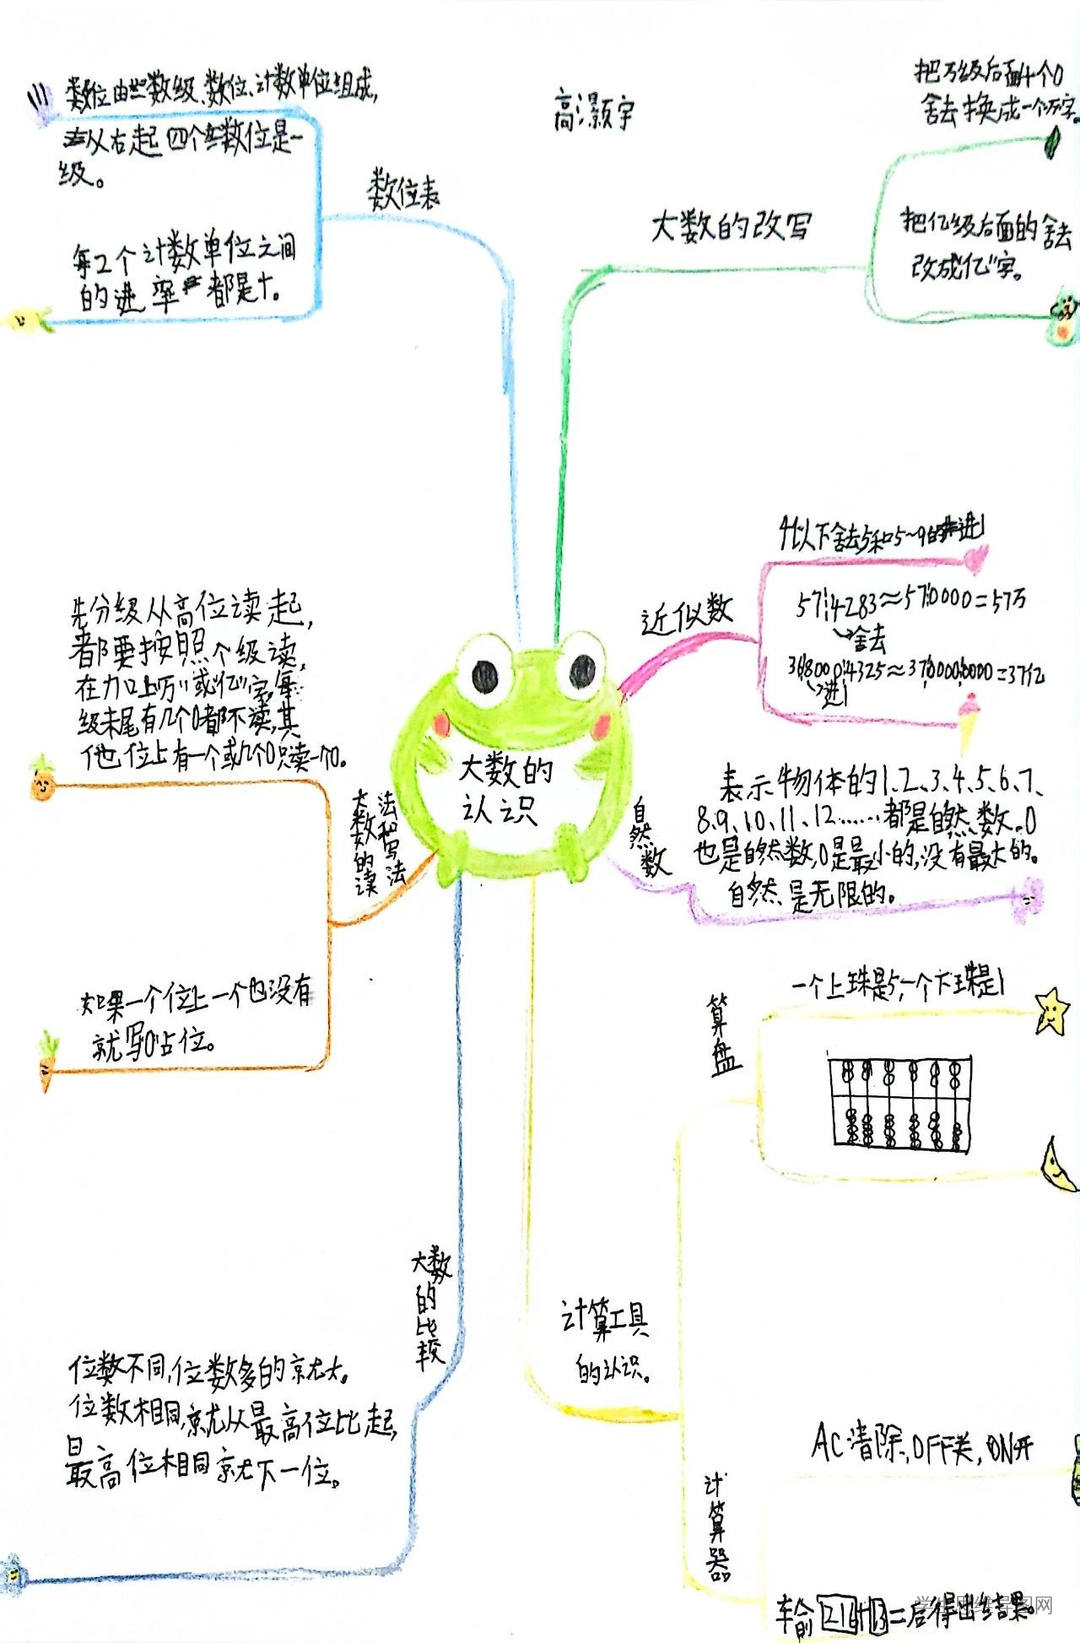 高灏宇
数位由数级、数位、计数单位组成,
从右起四个数位是一
级。
数位表
每2个计数单位之间
的进率都是十。
大数的改写
把万级后面4个0
舍去换成一个万字。
把亿级后面的舍去
改成亿字。
近似数
4以下舍去5和5~9的进1
57¦4283≈57¦0000=57万
舍去
36¦8000¦4325≈37¦0000¦0000=37亿
进1
先分级从高位读起,
都要按照个级读,
在加上"万"或"亿"字,每
级末尾有几个0都不读,其
他位上有一个或几个0只读一个0。
大数的读
法和写法
如果一个位上一个也没有
就写0占位。
大数的
认识
自然数
表示物体的1、2、3、4、5、6、7、
8、9、10、11、12……都是自然数。0
也是自然数,0是最小的,没有最大的。
自然是无限的。
算盘
一个上珠是5,一个下珠是1
大数的比较
位数不同,位数多的就大。
位数相同,就从最高位比起,
最高位相同就下一位。
计算工具
的认识。
计算器
AC清除,OFF关,ON开
输 21 + 13 = 后得出结果。
学生思维导图网